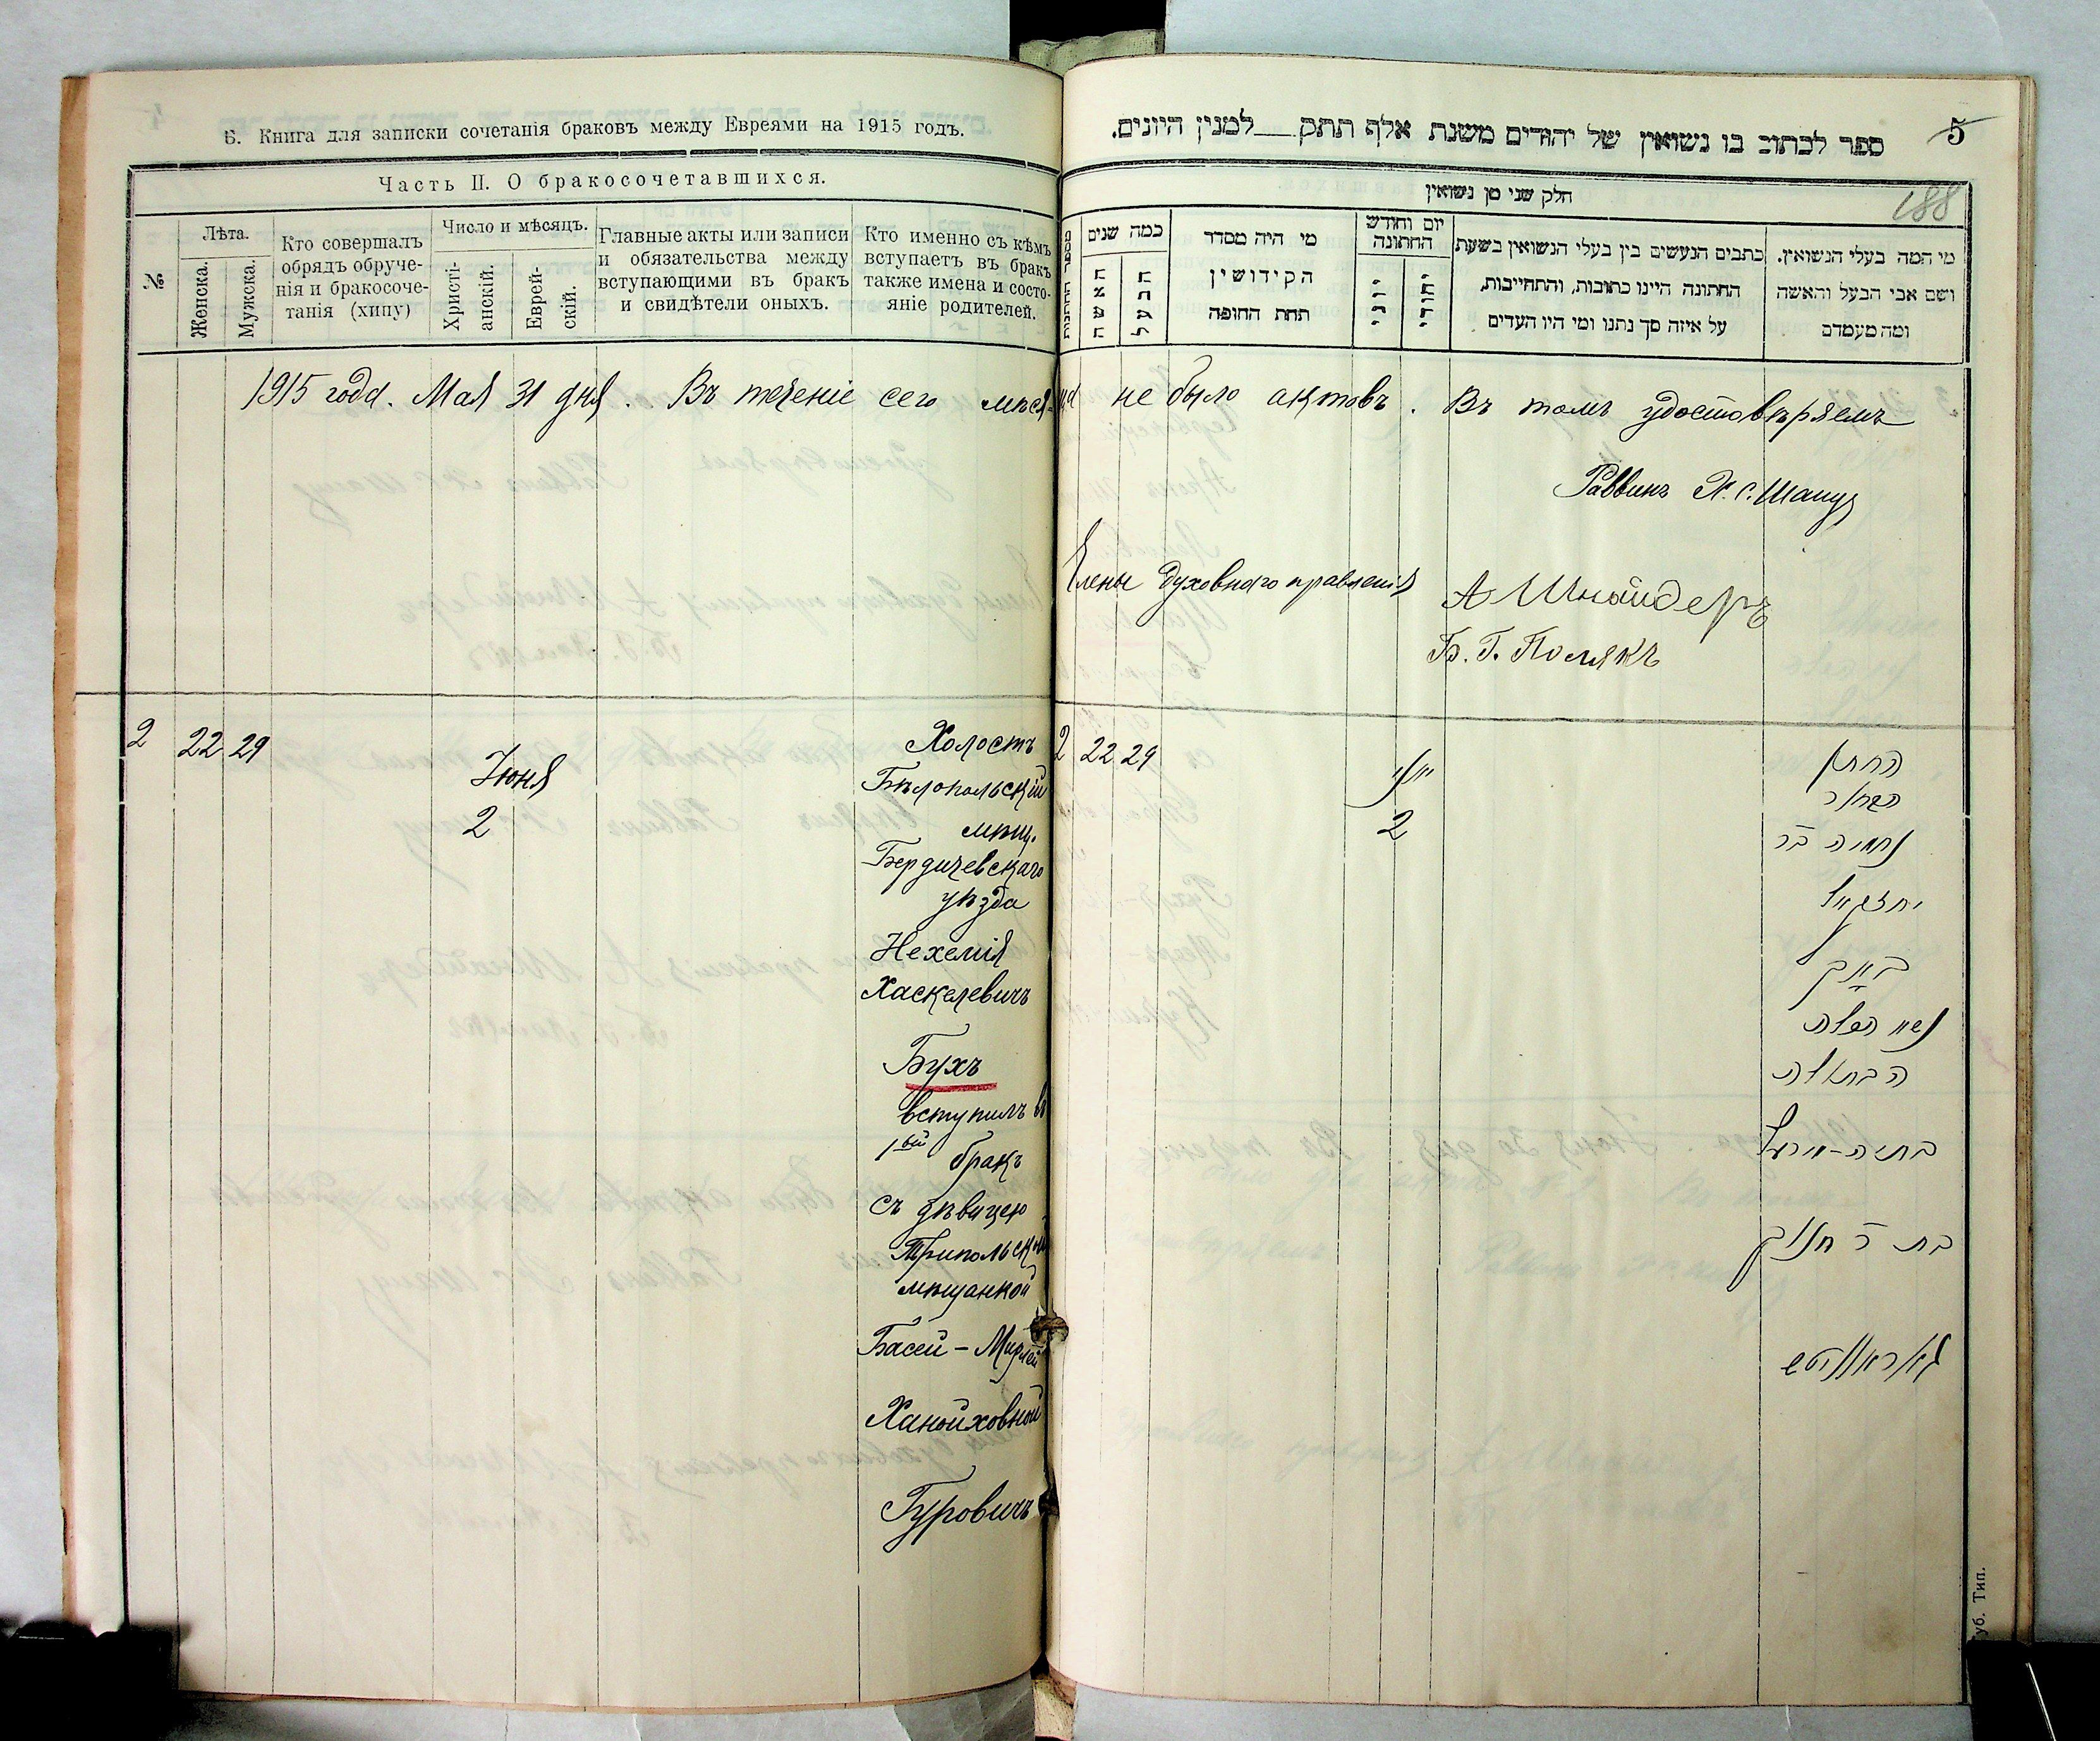 Б. Книга для записки сочетанія браковъ между Евреями на 1915 годъ.
Часть II. О бракосочетавшихся.
№
Лѣта.
Женска.
Мужска.
Кто совершалъ
обрядъ обруче-
нія и бракосоче-
танія (хипу)
Число и мѣсяцъ.
Христі-
анскій.
Еврей-
скій.
Главные акты или записи
и обязательства между
вступающими въ бракъ
и свидѣтели оныхъ.
Кто именно съ кѣмъ
вступаетъ въ бракъ
также имена и состо-
яніе родителей.
5
188
ספר לכתוב בו נשואין של יהודים משנת אלף תתק___למנין היונים.
חלק שני מן נשואין
מי המה בעלי הנשואין.
ושם אבי הבעל והאשה
ומה מעמדם
כתבים הנעשים בין בעלי הנשואין בשעת
החתונה היינו כתובות, והתחייבות,
על איזה סך נתנו ומי היו העדים
יום וחודש
החתונה
יהודי
יוני
מי היה מסדר
הקידושין
תחת החופה
כמה שנים
הבעל
האשה
1915 года. Мая 31 дня. Въ теченіе сего мѣсяца не было актовъ. Въ томъ удостовѣряемъ
Раввинъ Х. С. Шапиро
Члены духовнаго правленія А Шнайдеръ
Б. Г. Полякъ
2 22 29
Іюня
2
Холостъ
Бѣлопольскій
мѣщ.
Бердичевскаго
уѣзда
Нехемія
Хаскелевичъ
Бухъ
вступилъ въ
1ый бракъ
съ дѣвицею
Трипольской
мѣщанкой
Басей-Мирлей
Ханойховной
Гуровичъ
2 22 29
יוני
2
החתן
הבחור
נחמיה בר
יחזקאל
באך
נשא הבלה
הבתולה
בתיה-מירל
בת ר חנוך
גוראוויטש
уб. Тип.